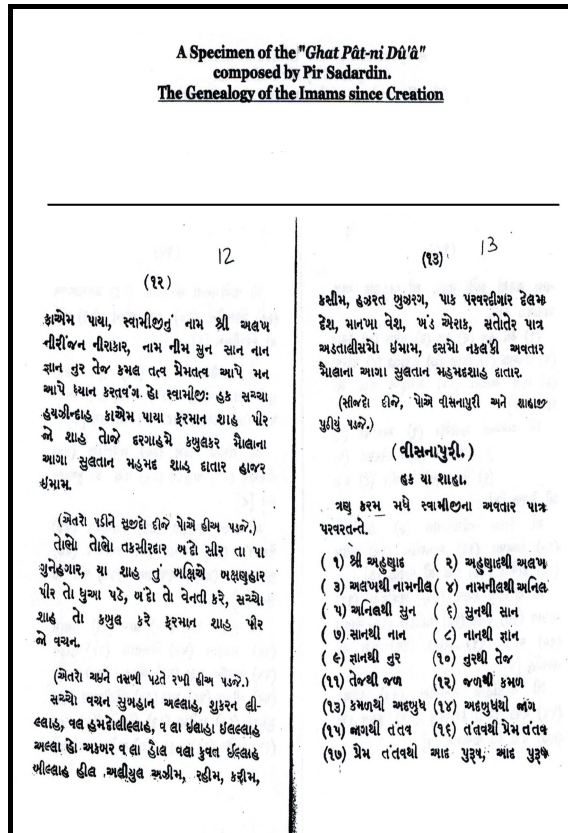 A Specimen of the "Ghat Pât-ni Dû'â"
composed by Pir Sadardin.
The Genealogy of the Imams since Creation
12
(૧૨)
કાએમ પાયા, સ્વામીજીનું નામ શ્રી અલખ
નીરીંજન નીરાકાર, નામ નીમ સુન સાન નાન
જ્ઞાન નુર તેજ કમલ તત્વ પ્રેમતત્વ આપે મન
આપે ધ્યાન કરતવંગ. હો સ્વામીજી: હક સચ્ચા
હયઝીન્દાહ કાએમ પાયા ફરમાન શાહ પીર
જો શાહ તોજે દરગાહમેં કબુલકર મૌલાના
આગા સુલતાન મહમદ શાહ દાતાર હાજર
ઈમામ.
(એતરો પડીને સુજીદો દીજે પોએ હીઅ પડજે.)
તોભો તોભો તકસીરદાર બંદો સીર તા પા
ગુનેહગાર, યા શાહ તું બક્ષિએ બક્ષણહાર
પીર તો ધુઆ પડે, બંદો તો વેનતી કરે, સચ્ચો
શાહ તો કબુલ કરે ફરમાન શાહ પીર
જો વચન.
(એતરો ચઈને તસબી પંટતે રખી હીઅ પડજે.)
સચ્ચો વચન સુબહાન અલ્લાહ, શુકરન લી-
લ્લાહ, વલ હમદોલીલ્લાહ, વ લા ઈલાહા ઈલલ્લાહ
અલ્લા હો અકબર વ લા હૌલ વલા કુવત ઈલ્લાહ
બીલ્લાહ હીલ અલીયુલ અઝીમ, રહીમ, કરીમ,
13
(૧૩)
કસીમ, હઝરત બુઝરગ, પાક પરવરદીગાર દેલમ
દેશ, માનખા વેશ, ખંડ એરાક, સતોતેર પાત્ર
અડતાલીસમો ઈમામ, દસમો નકલંકી અવતાર
મૌલાના આગા સુલતાન મહમદશાહ દાતાર.
(સીજદો દીજે, પોએ વીસનાપુરી અને શાહાજી
પુડીયું પડજે.)
(વીસનાપુરી.)
હક યા શાહા.
ત્રણ કરમ મધે સ્વામીજીના અવતાર પાત્ર
પરવરતન્તે.
( ૧) શ્રી અહુણાદ ( ૨) અહુણાદથી અલખ
( ૩) અલખથી નામનીલ ( ૪) નામનીલથી અનિલ
( ૫) અનિલથી સુન ( ૬) સુનથી સાન
( ૭) સાનથી નાન ( ૮) નાનથી જ્ઞાન
( ૯) જ્ઞાનથી નુર (૧૦) નુરથી તેજ
(૧૧) તેજથી જળ (૧૨) જળથી કમળ
(૧૩) કમળથી અદબુધ (૧૪) અદબુધથી જાંગ
(૧૫) જાગથી તંતવ (૧૬) તંતવથી પ્રેમ તંતવ
(૧૭) પ્રેમ તંતવથી આદ પુરૂષ, આદ પુરૂષ